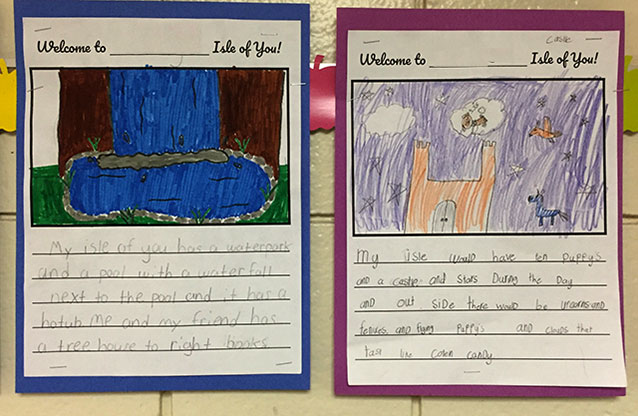 Welcome to ____________ Isle of You!
My isle of you has a waterpark
and a pool with a waterfall
next to the pool and it has a
hotub me and my friend has
a tree house to right books
Castle
Welcome to ____________ Isle of You!
My isle would have ten puppys
and a castle and stars During the Day
and out side there would be unicorns and
and flying puppy's and clouds that
tast like coten candy